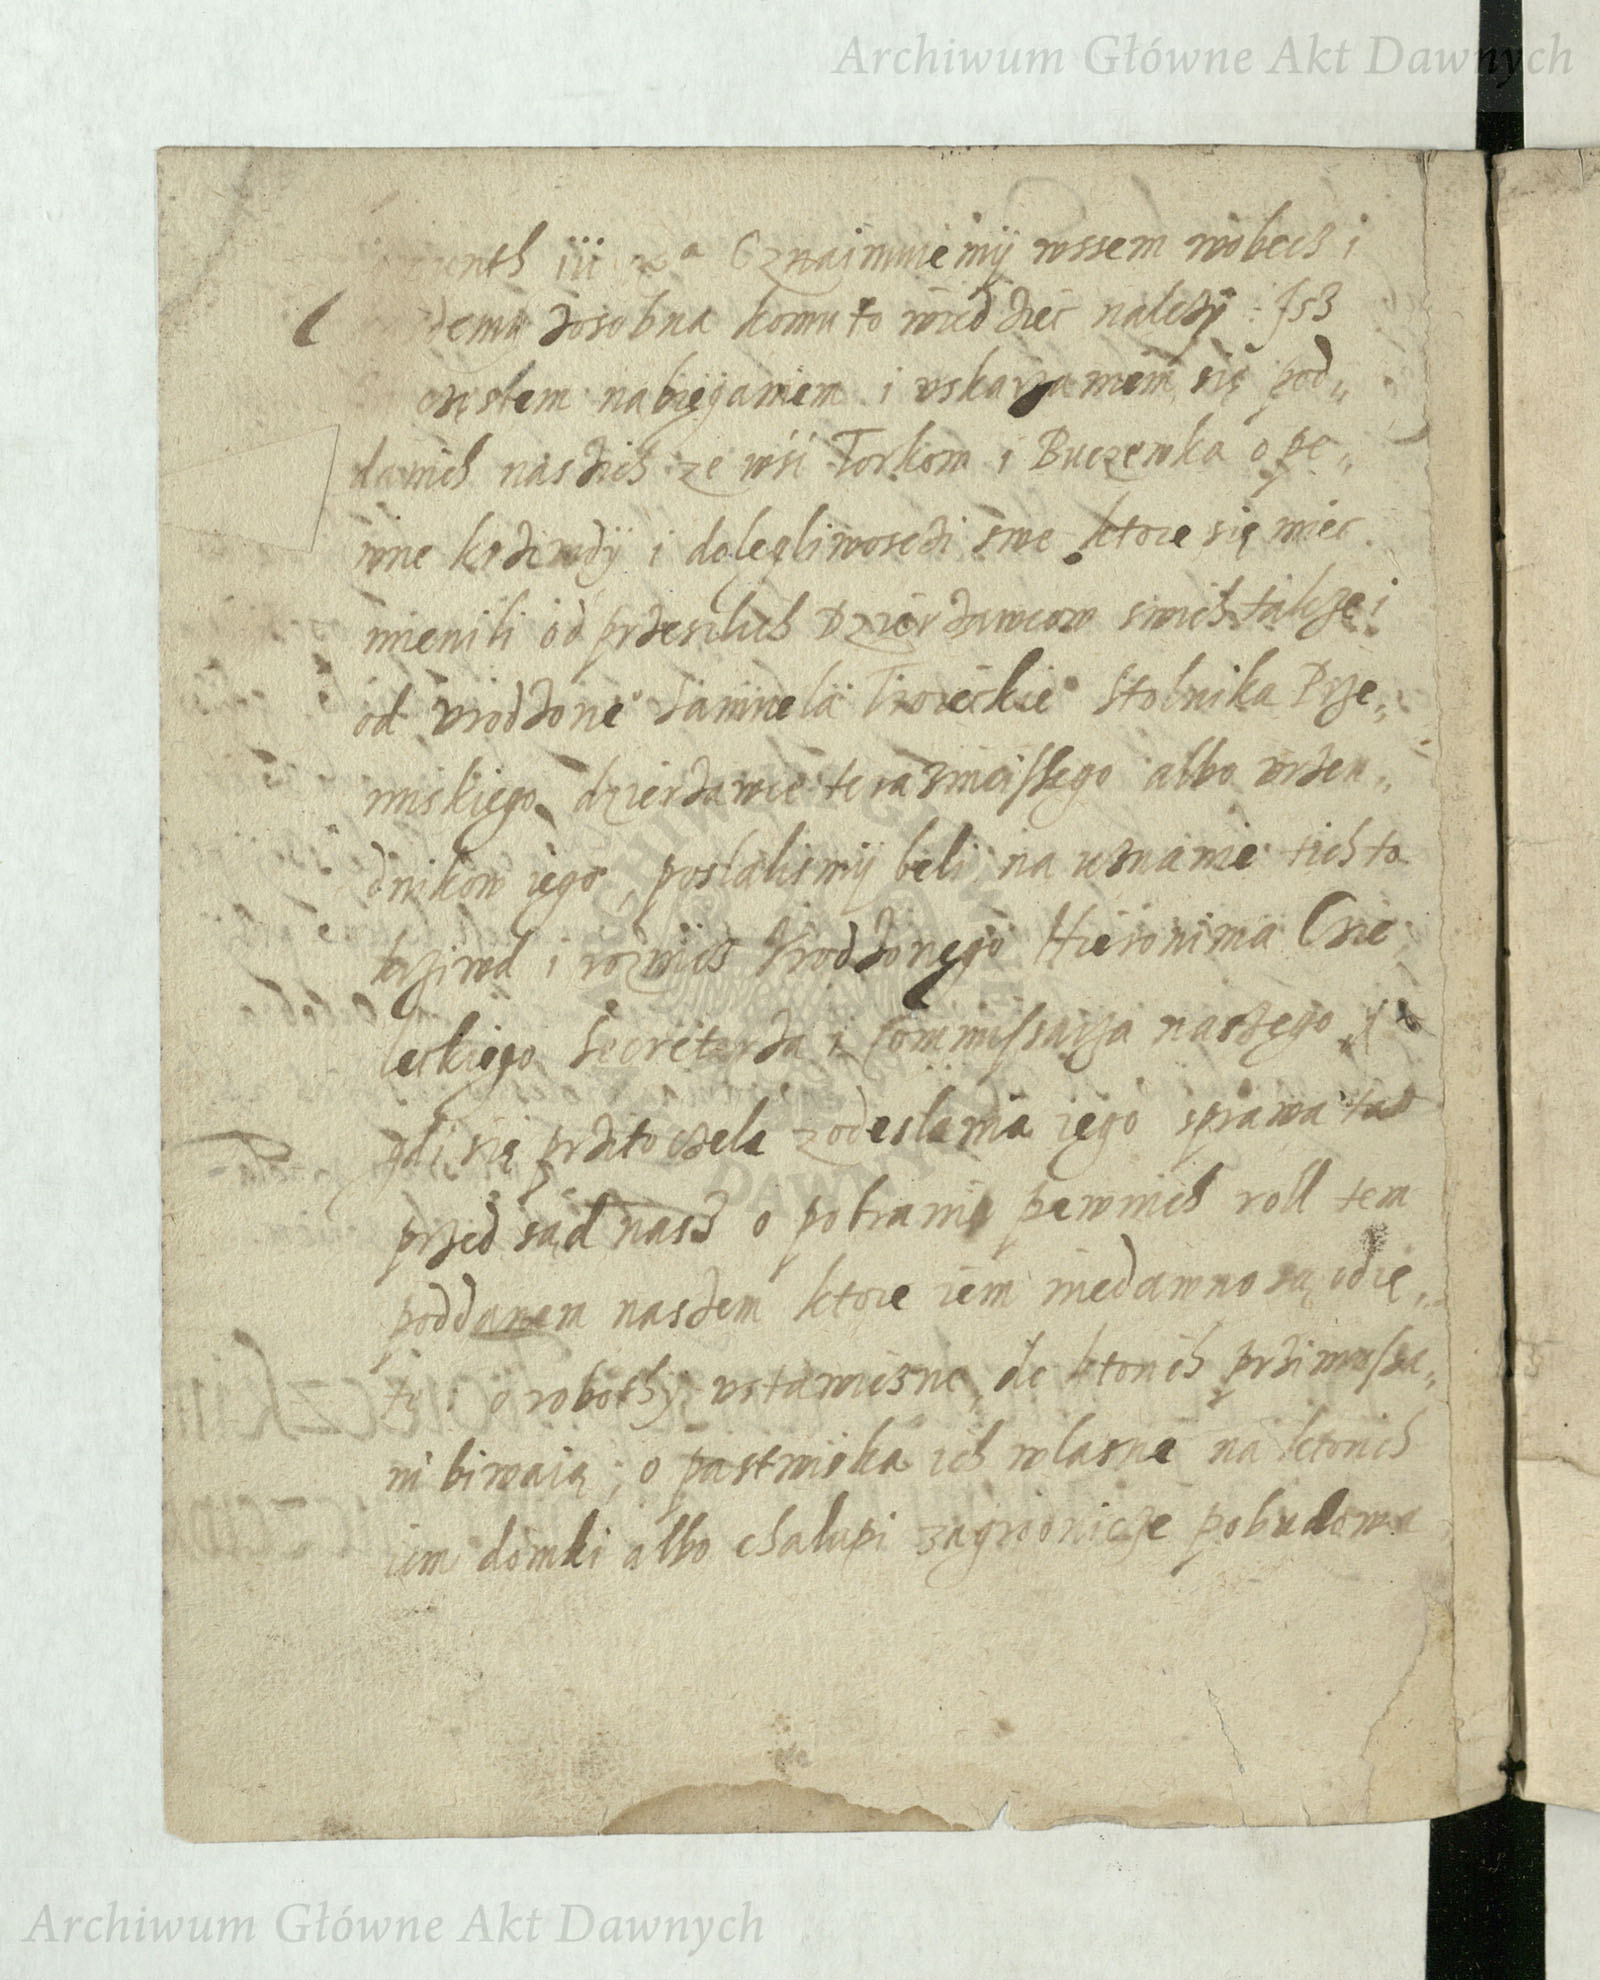 Archiwum Główne Akt Dawnych
iii Oznaimuiemÿ wssem wobech i
zosobna komu to wiedziec nalezÿ: Isz
czestem nabieganiem i vskarzaniem się pod„
danich naszich ze wsi Torkom i Buczewka o pe„
wne krziwdÿ i dolegliwosczi swe ktore się miec
mienili od przeslich Dzierzawcow swich takze i
od vrodzone° Samuela Stolnika Prze„
miskiego dzierzawce teraznieiszego albo vrzen„
dnikow iego, poslalismÿ beli na uznanie tich to
krziwd i roznic Vrodzonego Hieronima
leckiego Secretarza i Commissarza naszego
gdi się przitoczela z odeslania iego sprawa ta
przed sąd nasz o pobranie pewnich roll tem
poddanem naszem ktore iem niedawno są odię„
te: o robothy vstawiczne, do ktorich przimusza„
ni biwaią; o pastwiska ich wlasne na ktorich
iem domki albo chalupi zagrodnicze pobudowa
Archiwum Główne Akt Dawnych